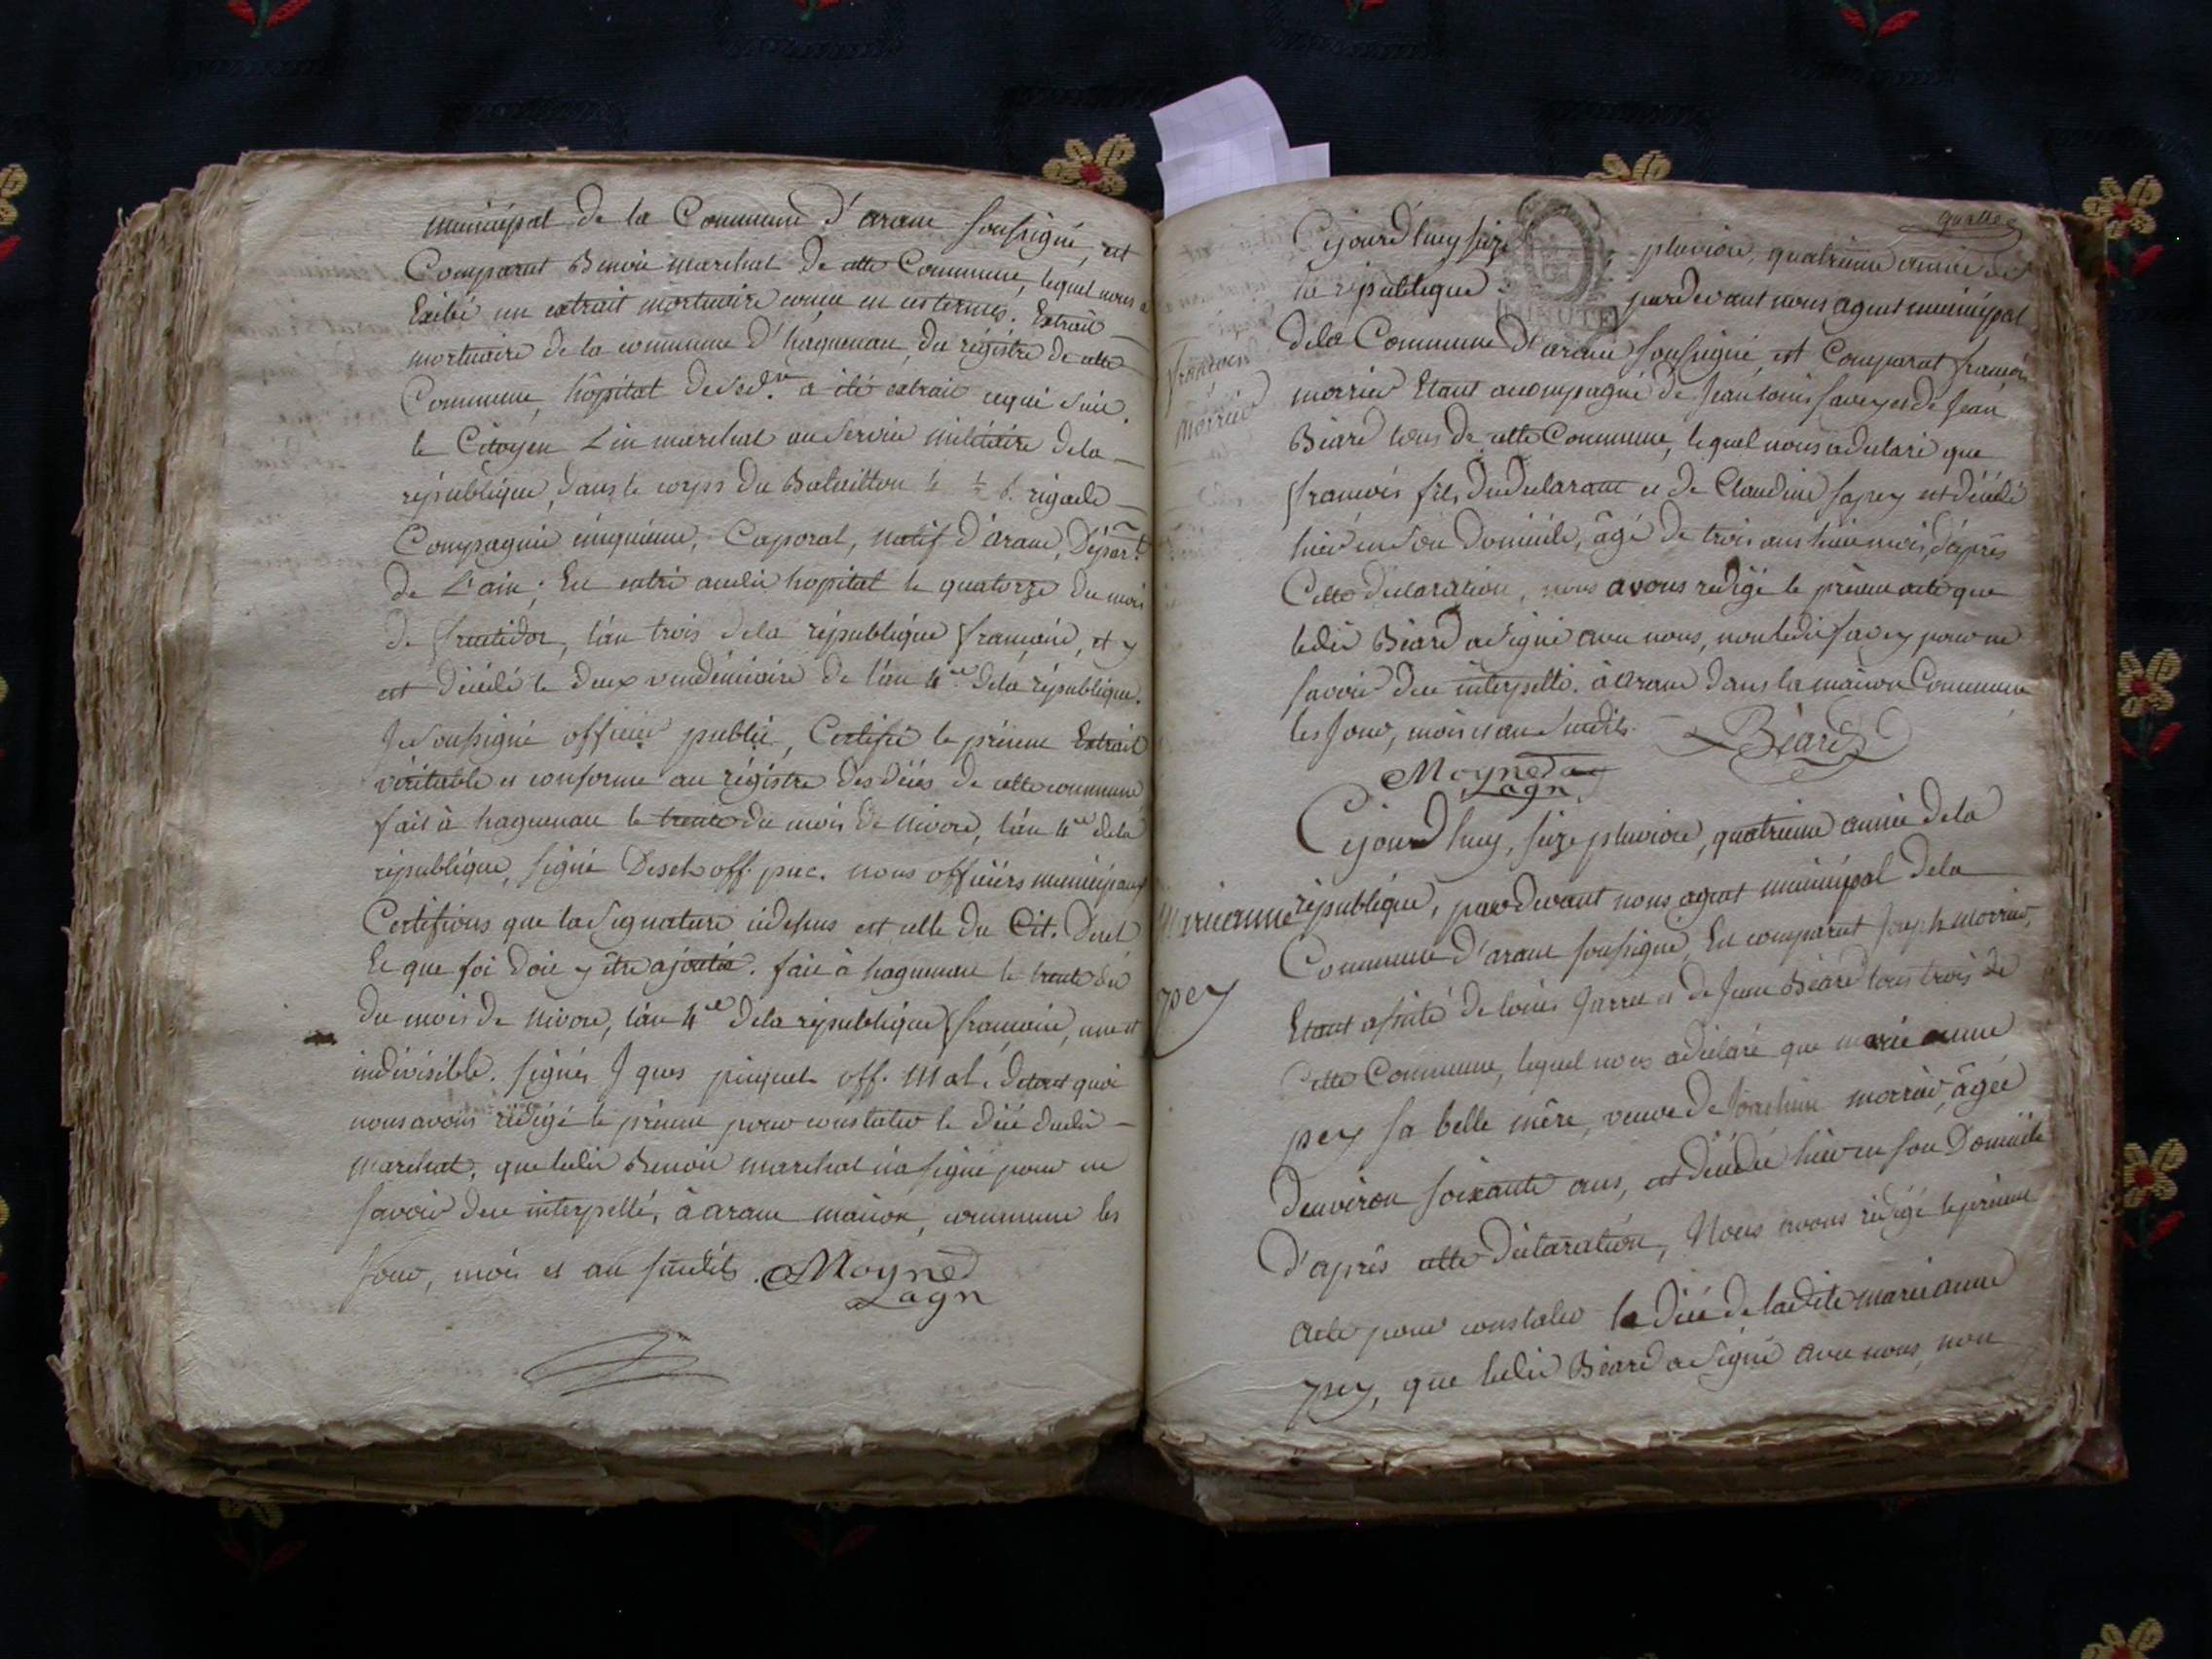 municipal de la Commune d'arane soussigné, est
Comparut Benoit marchat de cette Commune, lequel nous a
Exibé un extrait mortuaire conçu en ces termes. Extrait
mortuaire de la commune d'haguenau, du régistre de cette
Commune, hôpital de a été extrait cequi suit.
le Citoyen marchat au Service militaire dela
république, dans le corps du Bataillon
Compagnie cinquieme, Caporal, natif d'arane, Départ.t
de L'ain; Est entré audit hôpital le quatorze du mois
de fructidor, l'an trois dela république française, et y
est décédé le deux vendémiaire de l'an 4.me dela république.
Je Soussigné officier public, Certifie le présent Extrait
véritable et conforme au régistre des décès de cette commune
fait à haguenau le trente du mois de nivose, l'an 4.me dela
république, signé off. puc. nous officiers municipaux
Certifions que la Signature cidessus est celle du Cit.
Et que foi doit y être ajoutée. fait à haguenau le trente dit
du mois de nivose, l'an 4.me dela république française, une et
indivisible. signés off. Mal. detout quoi
nous avons rédigé le présent pour constater le décé dudit
marchat, que ledit Benoit marchat n'a signé pour ne
savoir dece interpellé, à arane maison, commune les
jour, mois et an susdits. Moyned
agn
quatre
Cejourd'huy seize pluviose, quatrieme année de
la république MINUTE pardevant nous agent municipal
dela Commune d'arane soussigné, est Comparut françois
françois
morrier Etant acompagné de Jean louis savey et de Jean
morrier
Béard tous de cette Commune, lequel nous a declaré que
françois fils dudeclarant et de Claudine sapey est décédé
hier en Son Domicile, âgé de trois ans huit mois, d'après
Cette declaration, nous avons rédigé le présent acte que
ledit Béard a Signé avec nous, non ledit savey pour ne
savoir dece interpellé. à arane dans la maison Commune
les jour, mois et an Susdits. Béard
Moyned
agn
Cejourd'huy, seize pluviose, quatrieme année dela
république, pardevant nous agent municipal dela
marieanne
Commune d'arane soussigné, Est comparut Joseph morrier,
pey
Etant assisté de louis et de Jean Béard tous trois de
Cette Commune, lequel nous a déclaré que marie anne
pey sa belle mère, veuve de Joachim morrier, âgée
denviron soixante ans, est décédée hier en son Domicile
D'après cette Déclaration, Nous avons rédigé le présent
acte pour constater le décé de ladite marie anne
pey, que ledit Béard a Signé avec nous, non